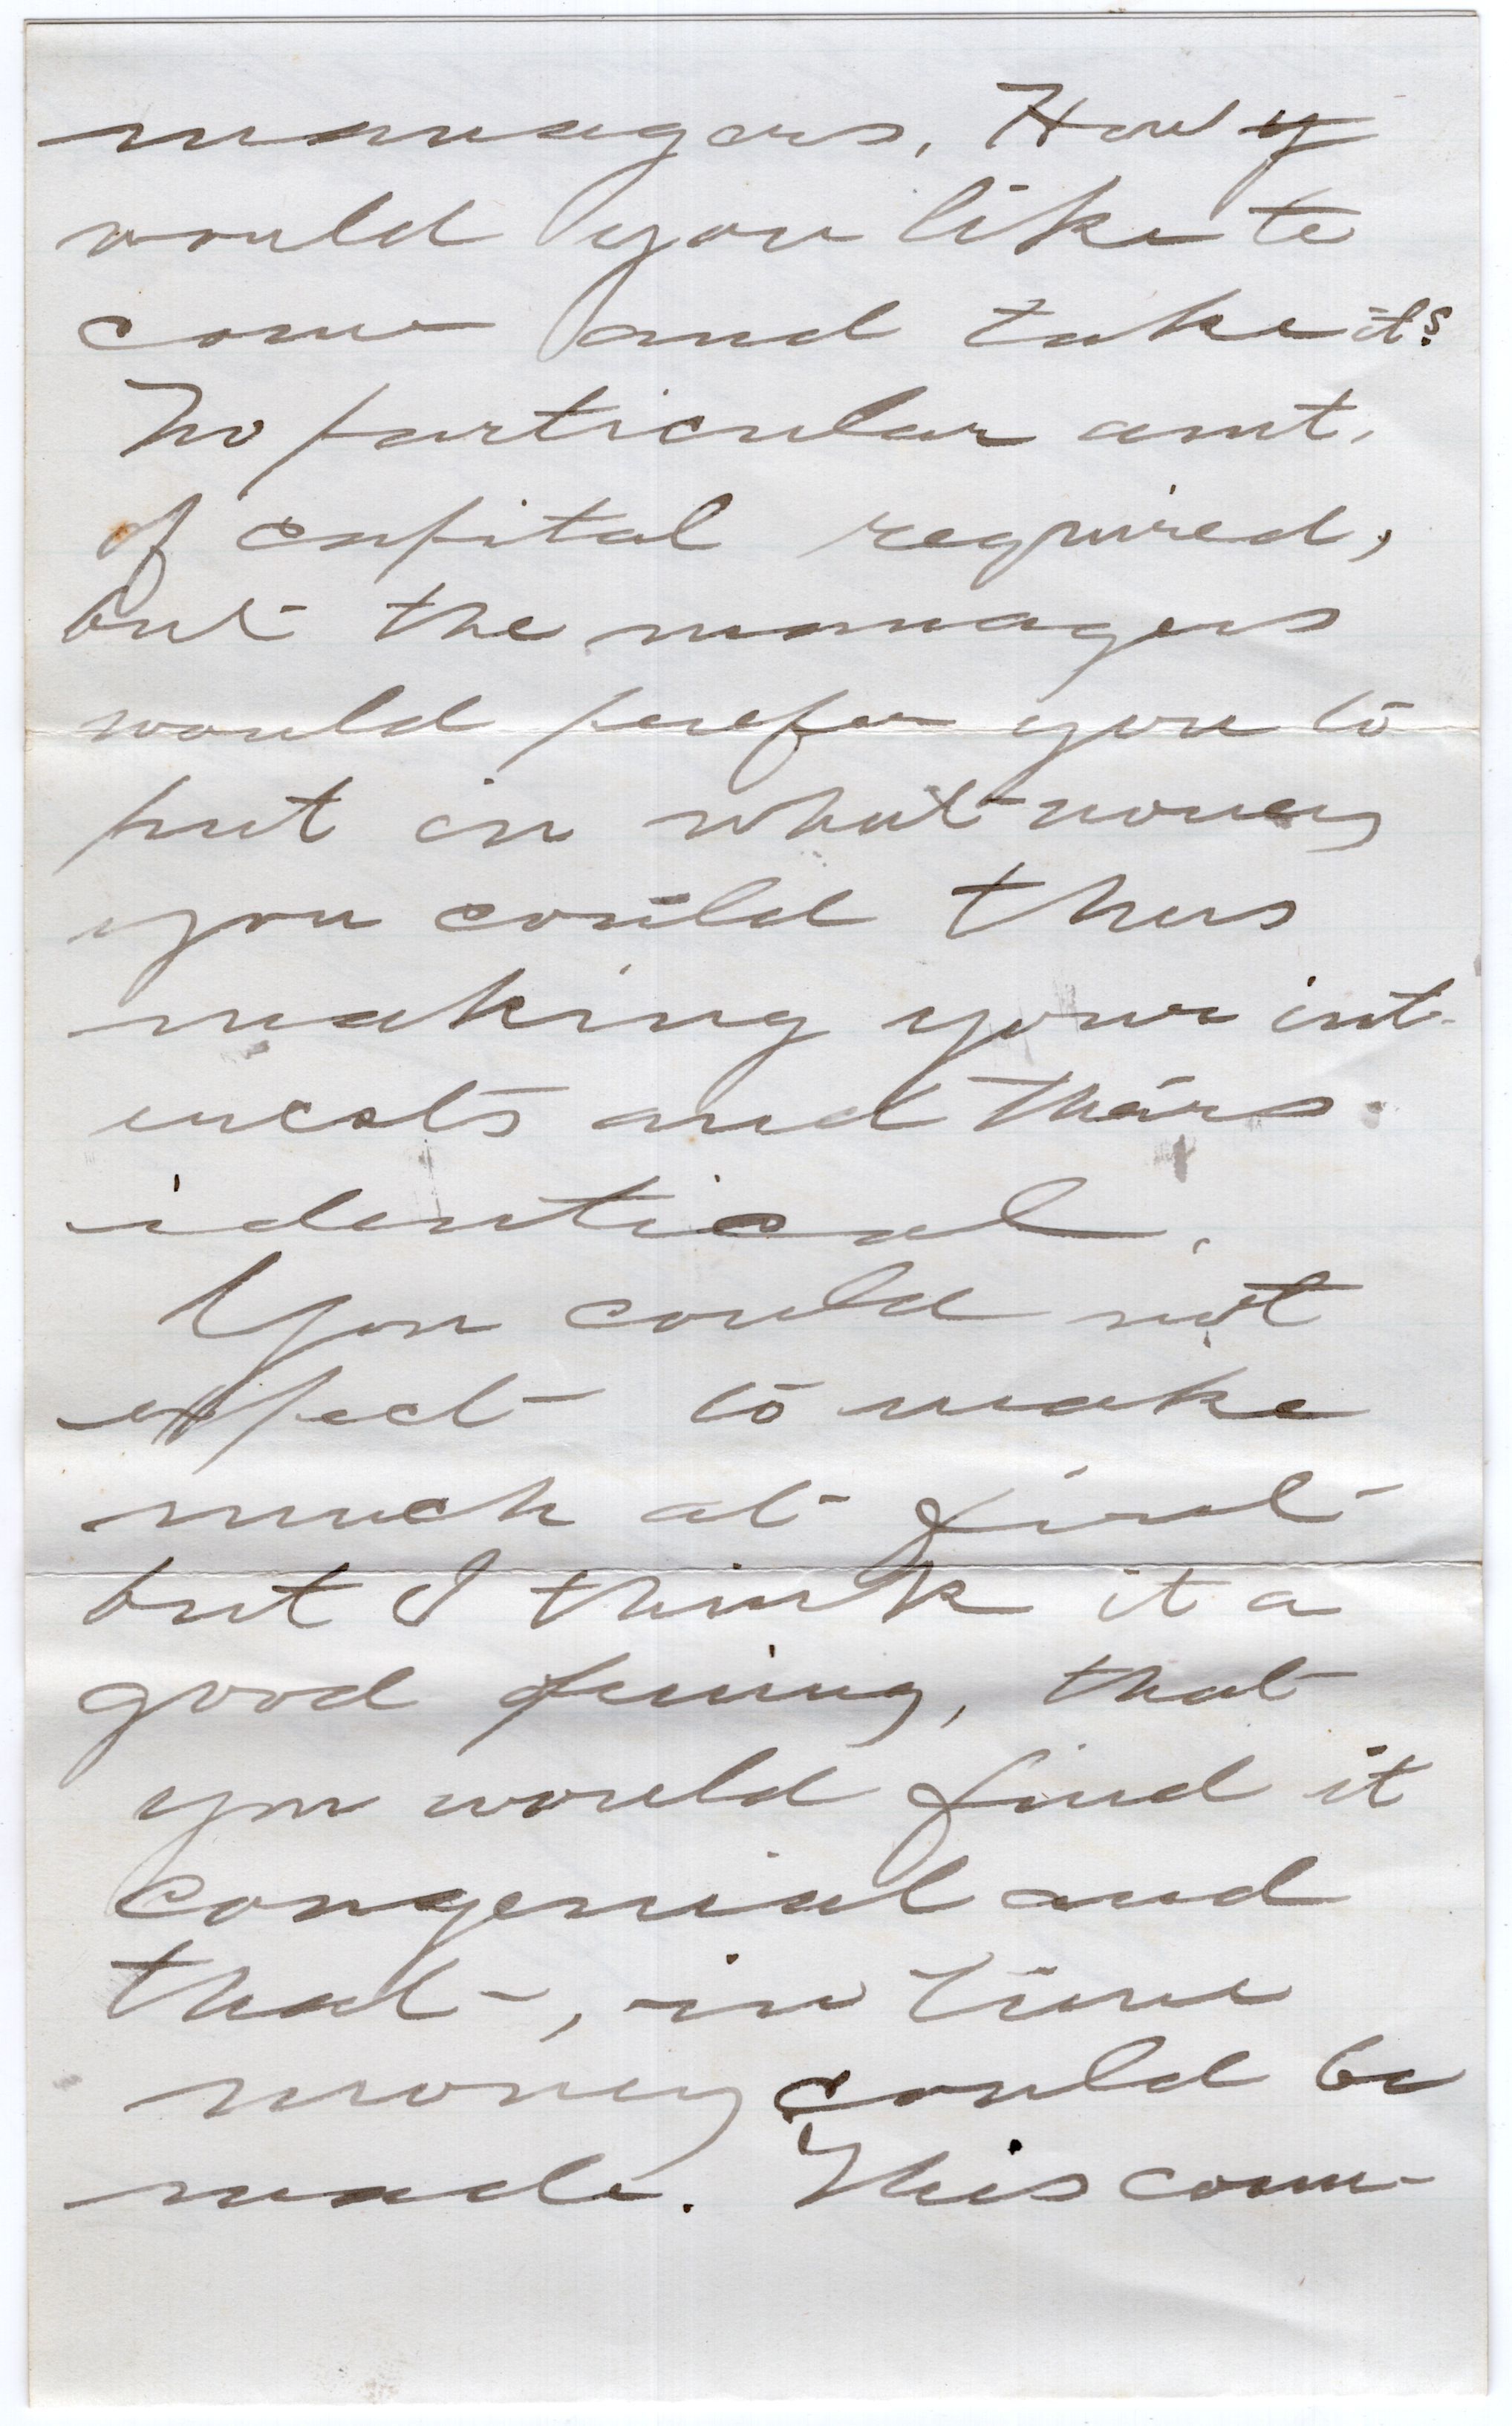 managers. How y
would you like to
come and take it?
No particular amt.
of capital required,
but the managers
would prefer you to
put in what money
you could thus
making your int-
erests and theirs
identical.
You could not
expect to make
much at first
but I think it a
good opening, that
you would find it
congenial and
that, in time
money could be
made. This com-